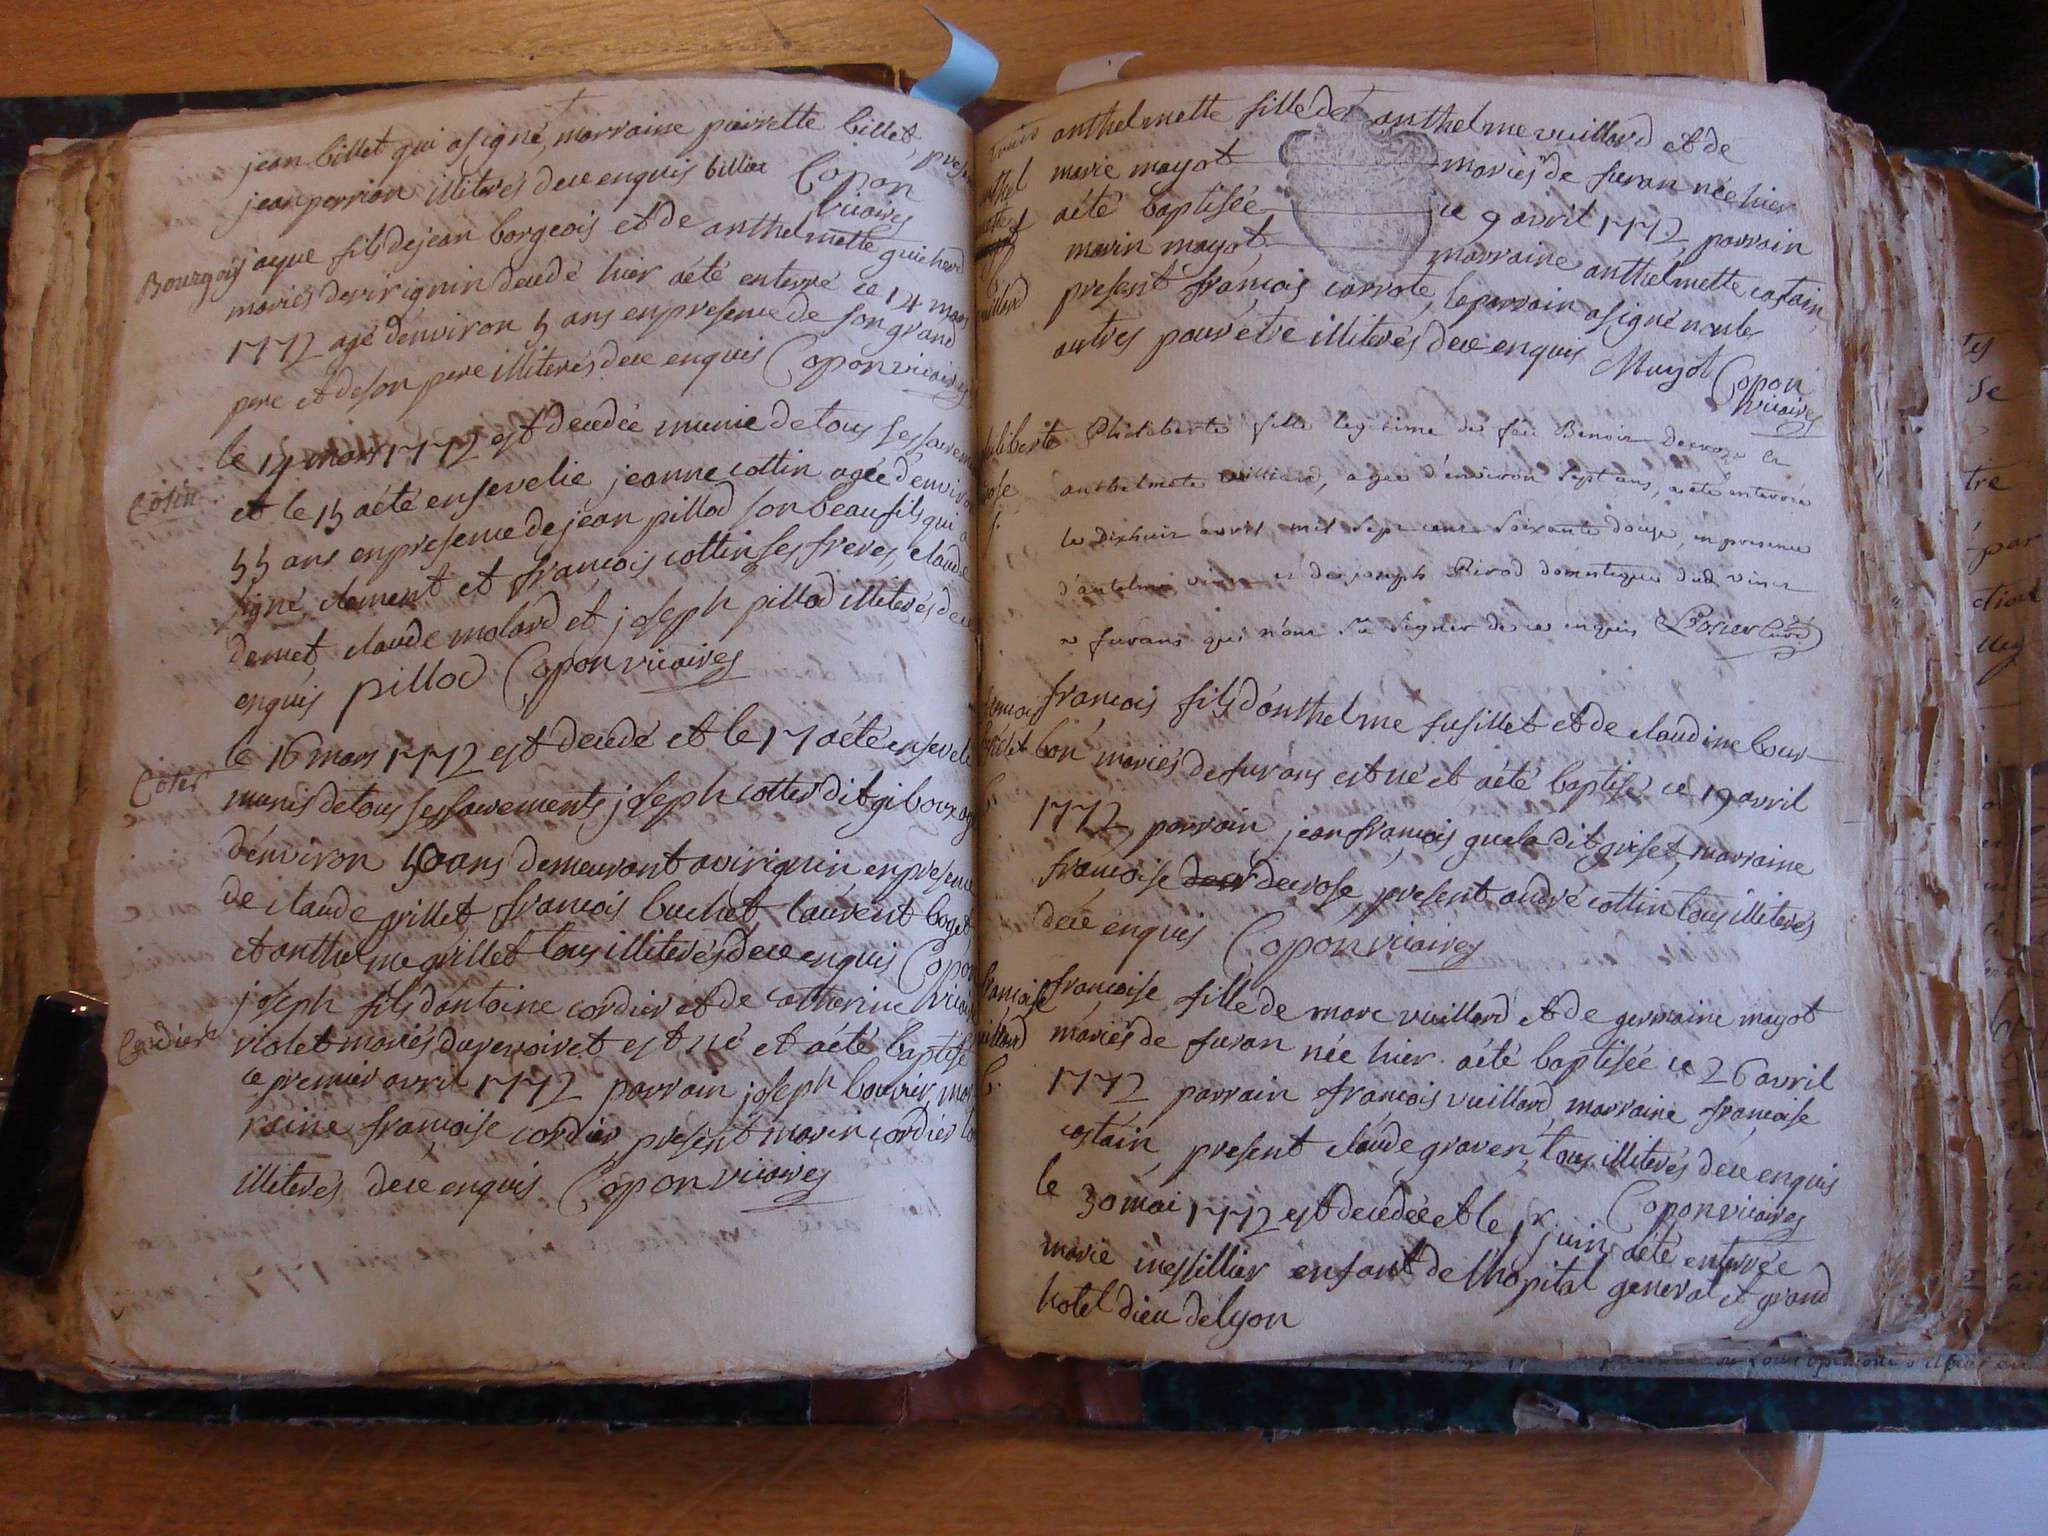 jean billet qui a signé, marraine pierrette billet, presen
jean perrion illiterés de ce enquis billiet Copon
vicaires
Bourgois jaque fils de jean borgeois et de anthelmette guicherd
mariés de virignin decedé hier a été enterré ce 14 mars
1772 agé denviron 5 ans en presence de son grand
pere et de son pere illiterés de ce enquis Copon vicaires
le 14 mars 1772 est decedée munie de tous ses sacremen
Cotin
et le 15 a été ensevelie jeanne cottin agée d'enviro
55 ans en presence de jean pillod son beaufils qui a
signé, clement et francois cottin ses freres, claude
demet, claude molard et joseph pillod illiterés de ce
enquis pillod Copon vicaires
le 16 mars 1772 est decedé et le 17 a été enseveli
Coter
munis de tous ses sacrements joseph cotter dit giboux agé
d'environ 50 ans demeurant a virignin en presence
de claude grillet, francois buchet, laurent boget,
et anthelme grillet tous illiterés de ce enquis Copon
vicaires
joseph fils dantoine cordier et de catherine
Cordier
violet mariés du pervoivet est né et a été baptisé
ce premier avril 1772 parrain joseph bouvier, mar
raine francoise cordier, present marin cordier to
illiterés de ce enquis Copon vicaires
anthelmette fille de anthelme vuillard et de
marie mayot mariés de furan née hier
a été baptisée ce 9 avril 1772, parrain
marin mayot, marraine anthelmette costain,
present francois carrote, le parrain a signé non les
autres pour etre illiterés de ce enquis Mayot Copon
vicaires
Philiberte fille legitime de feu Benoit Decroze et
anthelmete vuilliard, agée d'environ sept ans, a été enterrée
le dixhuit avril mil sept cent soixante douze, en presence
d'antelme et de joseph Pirod domestique
a furans qui n'ont sû signer de ce enquis curé
francois fils d'anthelme fusillet et de claudine bour
bon mariés de furans est né et a été baptisé ce 19 avril
1772, parrain jean francois guela dit griset, marraine
francoise decrose, present andré cottin tous illiterés
de ce enquis Copon vicaires
francoise
francoise fille de marc vuillard et de germaine mayot
vuillard
mariés de furan née hier a été baptisée ce 26 avril
b.
1772 parrain francois vuillard, marraine francoise
costain, present claude graven, tous illiterés de ce enquis
Copon vicaires
le 30 mai 1772 est decedée et le 1er juin a été enterrée
marie messillier enfant de l'hopital general et grand
hotel dieu de lyon